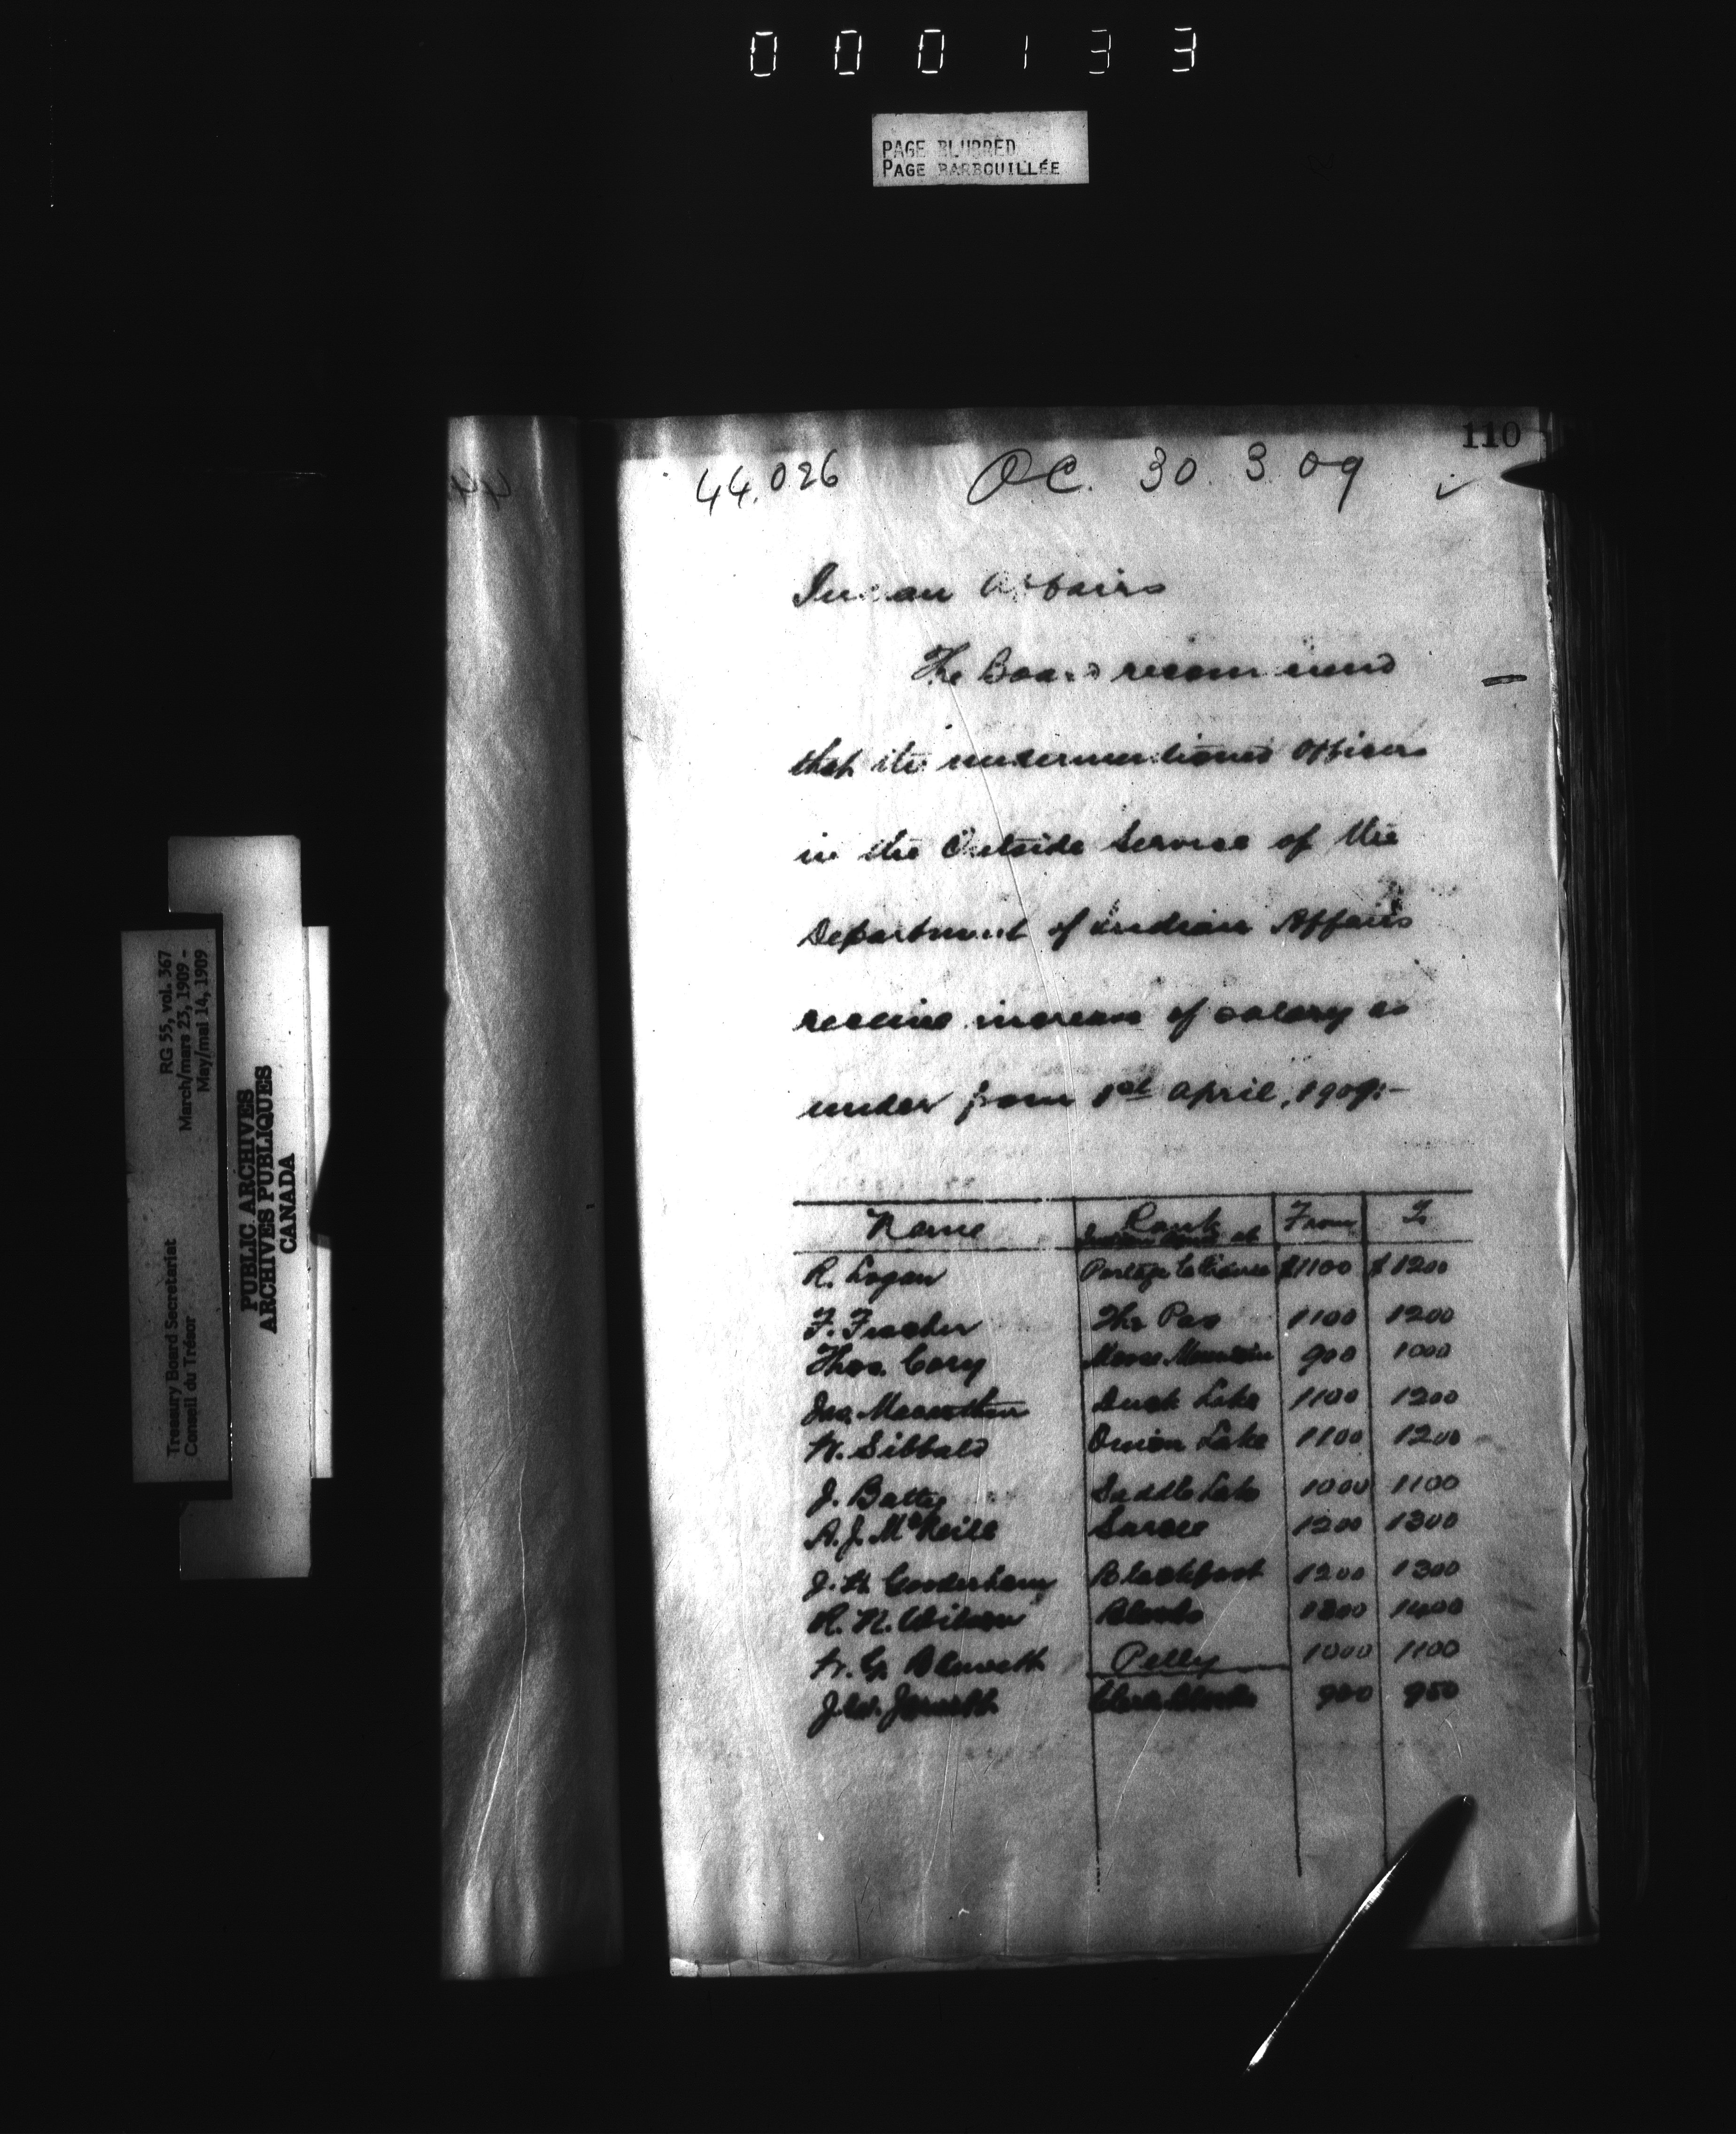 000133
PAGE BLURRED
PAGE BARBOUILLÉE
110
44.026 O.C. 30.3.09
Indian Affairs
The Board recommend
that the undermentioned officers
in the Outside Service of the
Department of Indian Affairs
receive increase of salary as
under from 1st April, 1909:-
Name Rank From To
Indian Agent at
R. Logan Portage la Prairie $1100 $1200
F. Fischer The Pas 1100 1200
Thos. Cory Moose Mountain 900 1000
Jno. Macarthur Duck Lake 1100 1200
W. Sibbald Onion Lake 1100 1200
J. Batty Saddle Lake 1000 1100
A. J. McNeill Sarcee 1200 1300
J. H. Gooderham Blackfoot 1200 1300
R. N. Wilson Bloods 1300 1400
W. G. Blewett Pelly 1000 1100
J. W. Jowett Clerk Bloods 900 950
RG 55, vol. 367
March/mars 23, 1909 -
May/mai 14, 1909
Treasury Board Secretariat
Conseil du Trésor
PUBLIC ARCHIVES
ARCHIVES PUBLIQUES
CANADA